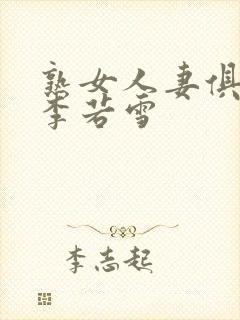 熟女人妻俱
李若雪
李志起